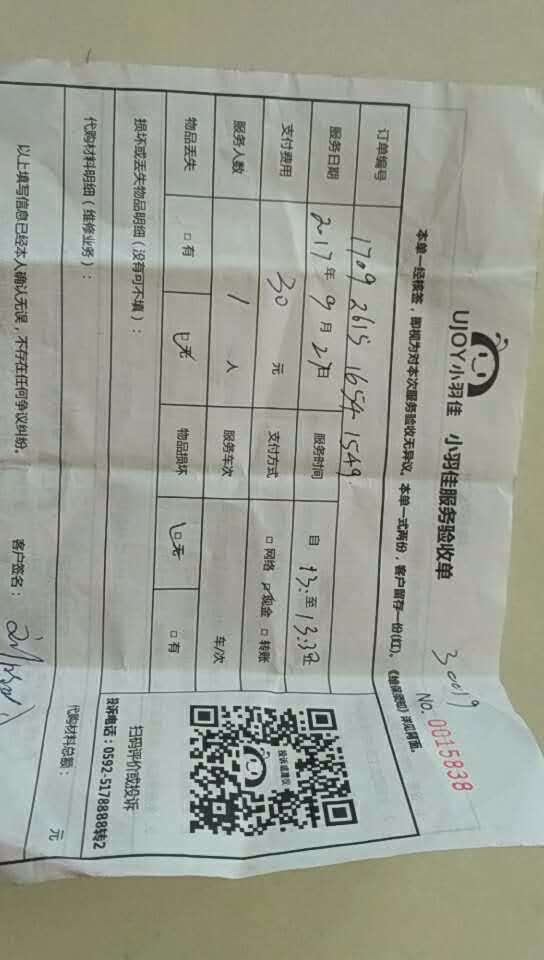 UJOY小羽佳 小羽佳服务验收单
30019
No. 0015838
本单一经核签，即视为对本次服务验收无异议。本单一式两份，客户留存一份(红)。《维保须知》详见背面。
订单编号 1709 2615 1654 1549
服务日期 2017年9月27日 服务时间 自 13: 至 13:30
支付费用 30 元 支付方式 □网络 ☑现金 □转账
服务人数 1 人 服务车次 车/次
物品丢失 □有 ☑无 物品损坏 ☑无 □有
损坏或丢失物品明细（没有可不填）：
投诉或建议
扫码评价或投诉
投诉电话：0592-5178888转2
代购材料明细（维修业务）： 代购材料总额： 元
以上填写信息已经本人确认无误，不存在任何争议纠纷。 客户签名：